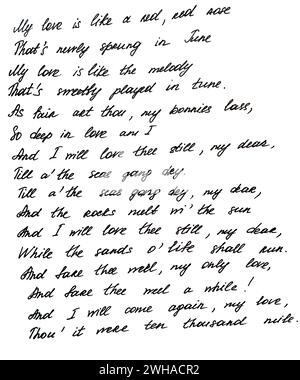 My love is like a red, red rose
That's newly sprung in June
My love is like the melody
That's sweetly played in tune.
As fair art thou, my bonnies lass,
So deep in love am I
And I will love thee still, my dear,
Till a'the seas gang dry.
Till a'the seas gang dry, my dear,
And the rocks melt wi' the sun
And I will love thee still, my dear,
While the sands o' life shall run.
And fare thee well, my only love,
And fare thee weel a while!
And I will come again, my love,
Thou' it were ten thousand mile.
alamy
Image ID: 2WHACR2
www.alamy.com